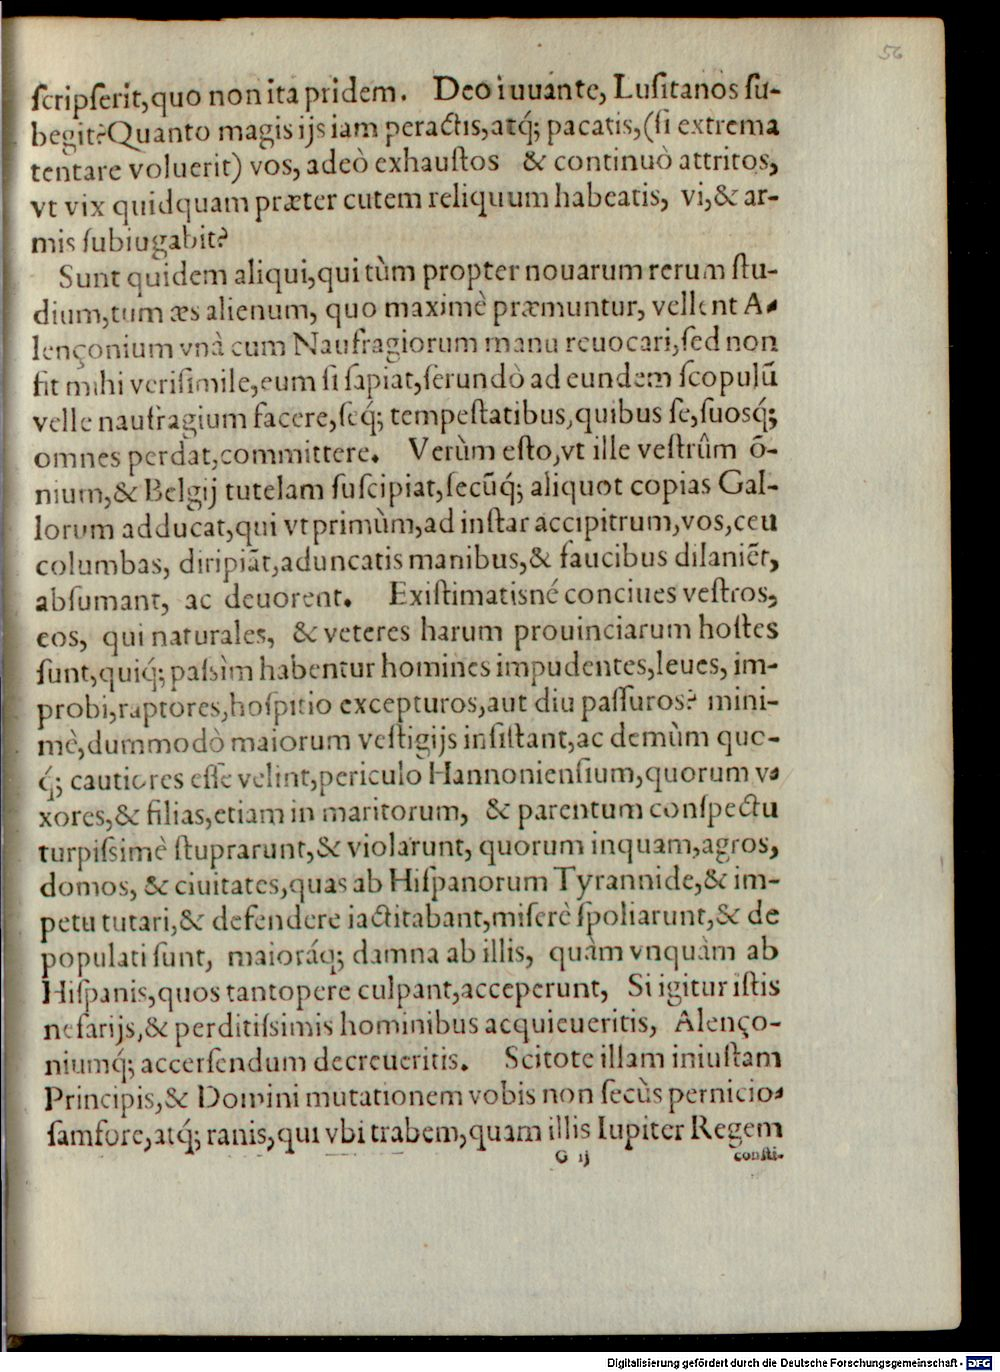 56
ſcripſerit,quo non ita pridem. Deo iuuante, Luſitanos ſu-
begit?Quanto magis ijs iam peractis,atq́; pacatis,(ſi extrema
tentare voluerit) vos, adeò exhauſtos & continuò attritos,
vt vix quidquam præter cutem reliquum habeatis, vi,& ar-
mis ſubiugabit?
Sunt quidem aliqui,qui tùm propter nouarum rerum ſtu-
dium,tum æs alienum, quo maximè præmuntur, vellent A-
lençonium vnà cum Naufragiorum manu reuocari,ſed non
fit mihi veriſimile,eum ſi ſapiat,ferundò ad eundem ſcopulũ
velle naufragium facere,ſeq́; tempeſtatibus,quibus ſe,ſuosq́;
omnes perdat,committere. Verùm eſto,vt ille veſtrûm õ-
nium,& Belgij tutelam ſuſcipiat,ſecũq́; aliquot copias Gal-
lorum adducat,qui vt primùm,ad inſtar accipitrum,vos,ceu
columbas, diripiãt,aduncatis manibus,& faucibus dilaniẽt,
abſumant, ac deuorent. Exiſtimatisné conciues veſtros,
eos, qui naturales, & veteres harum prouinciarum hoſtes
ſunt,quiq́; paſsìm habentur homines impudentes,leues, im-
probi,raptores,hoſpitio excepturos,aut diu paſſuros? mini-
mè,dummodò maiorum veſtigijs inſiſtant,ac demùm quo-
q́; cautiores eſſe velint,periculo Hannonienſium,quorum v-
xores,& filias,etiam in maritorum, & parentum conſpectu
turpiſsimè ſtuprarunt,& violarunt, quorum inquam,agros,
domos, & ciuitates,quas ab Hiſpanorum Tyrannide,& im-
petu tutari,& defendere iactitabant,miſerè ſpoliarunt,& de
populati ſunt, maioráq; damna ab illis, quàm vnquàm ab
Hiſpanis,quos tantopere culpant,acceperunt, Si igitur iſtis
nefarijs,& perditiſsimis hominibus acquieueritis, Alenço-
niumq́; accerſendum decreueritis. Scitote illam iniuſtam
Principis,& Domini mutationem vobis non ſecùs pernicio-
ſamfore,atq́; ranis,qui vbi trabem,quam illis Iupiter Regem
G ij conſti-
Digitalisierung gefördert durch die Deutsche Forschungsgemeinschaft - DFG